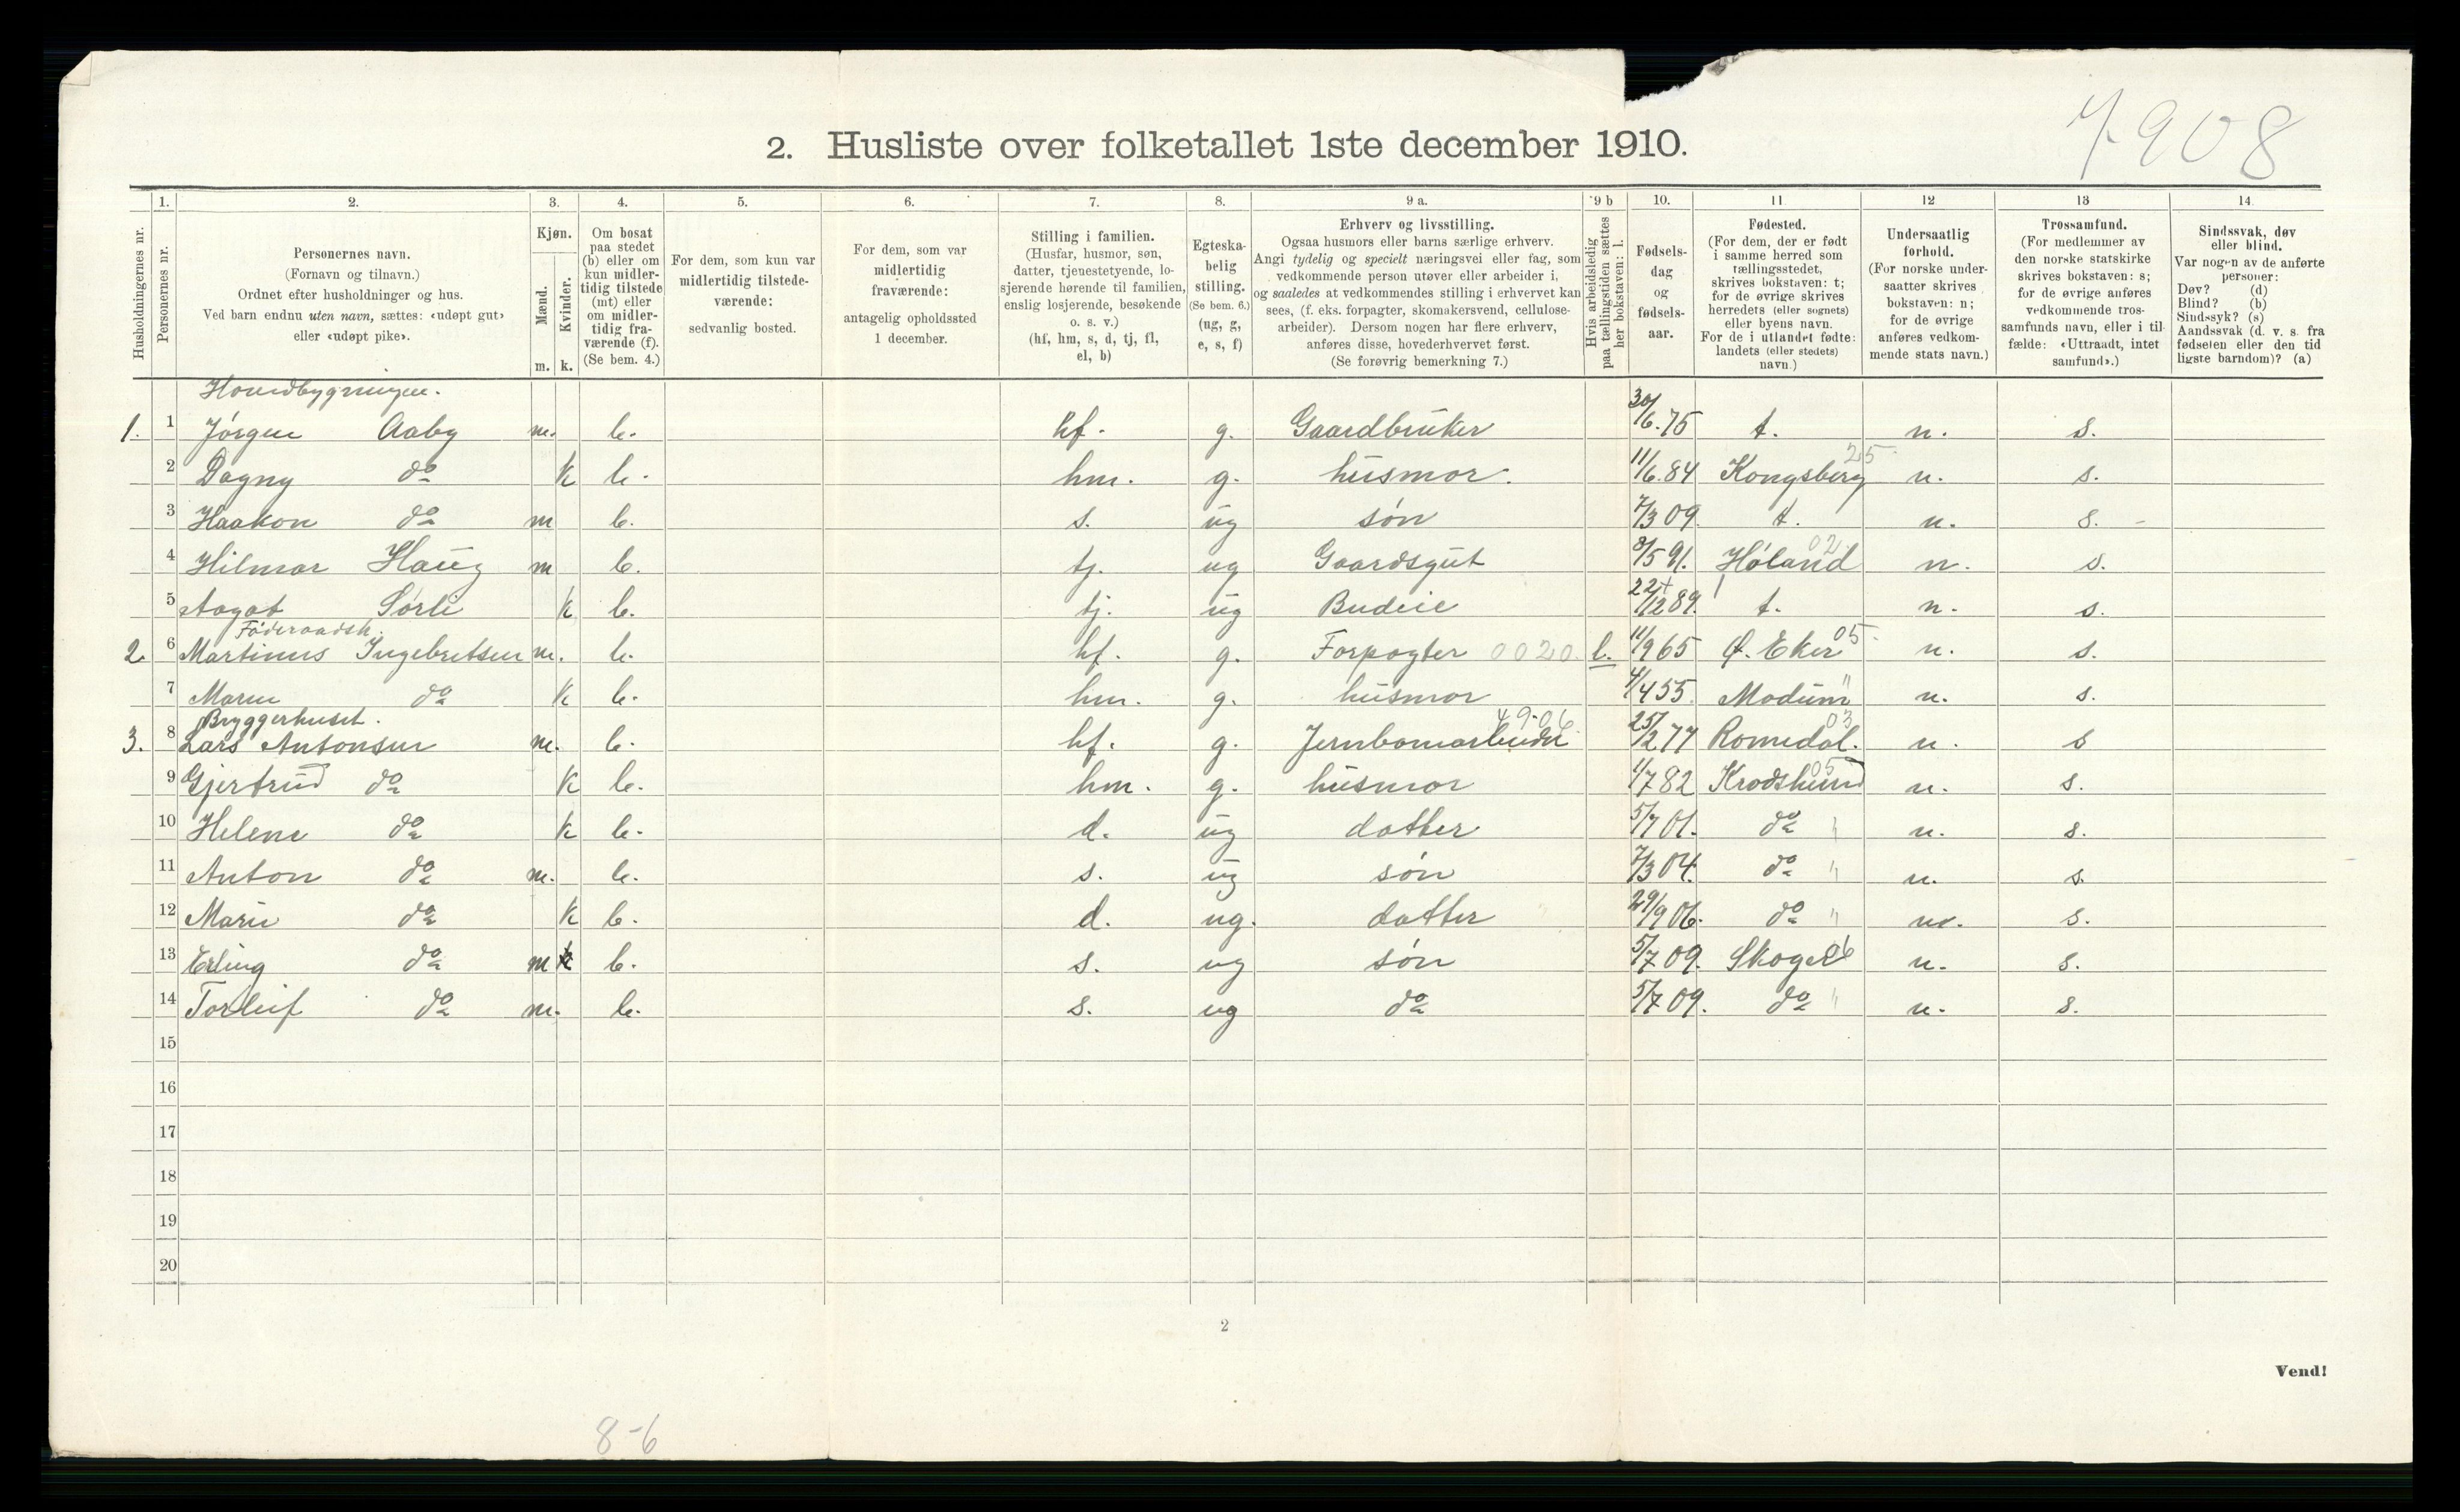 7908
2. Husliste over folketallet 1ste december 1910.
Husholdningernes nr.
1. Personernes nr.
2. Personernes navn.
(Fornavn og tilnavn.)
Ordnet efter husholdninger og hus.
Ved barn endnu uten navn, sættes: «udøpt gut»
eller «udøpt pike».
3. Kjøn.
Mænd. m.
Kvinder. k.
4. Om bosat
paa stedet
(b) eller om
kun midler-
tidig tilstede
(mt) eller
om midler-
tidig fra-
værende (f).
(Se bem. 4.)
5. For dem, som kun var
midlertidig tilstede-
værende:
sedvanlig bosted.
6. For dem, som var
midlertidig
fraværende:
antagelig opholdssted
1 december.
7. Stilling i familien.
(Husfar, husmor, søn,
datter, tjenestetyende, lo-
sjerende hørende til familien,
enslig losjerende, besøkende
o. s. v.)
(hf, hm, s, d, tj, fl,
el, b)
8. Egteska-
belig
stilling.
(Se bem. 6.)
(ug, g,
e, s, f)
9 a. Erhverv og livsstilling.
Ogsaa husmors eller barns særlige erhverv.
Angi tydelig og specielt næringsvei eller fag, som
vedkommende person utøver eller arbeider i,
og saaledes at vedkommendes stilling i erhvervet kan
sees, (f. eks. forpagter, skomakersvend, cellulose-
arbeider). Dersom nogen har flere erhverv,
anføres disse, hovederhvervet først.
(Se forøvrig bemerkning 7.)
9 b Hvis arbeidsledig
paa tællingstiden sættes
her bokstaven: l.
10. Fødsels-
dag
og
fødsels-
aar.
11 Fødested.
(For dem, der er født
i samme herred som
tællingsstedet,
skrives bokstaven: t;
for de øvrige skrives
herredets (eller sognets)
eller byens navn.
For de i utlandet fødte:
landets (eller stedets)
navn.)
12 Undersaatlig
forhold.
(For norske under-
saatter skrives
bokstaven: n;
for de øvrige
anføres vedkom-
mende stats navn.)
13 Trossamfund.
(For medlemmer av
den norske statskirke
skrives bokstaven: s;
for de øvrige anføres
vedkommende tros-
samfunds navn, eller i til-
fælde: «Uttraadt, intet
samfund».)
14. Sindssvak, døv
eller blind.
Var nogen av de anførte
personer:
Døv? (d)
Blind? (b)
Sindssyk? (s)
Aandssvak (d. v. s. fra
fødselen eller den tid
ligste barndom)? (a)
Hovedbygningen.
1. 1 Jörgen Aaby m. b. hf. g. Gaardbruker 30/6.75 t. n. s.
2 Dagny do k b. hm. g. husmor. 11/6.84 Kongsberg 25 n. s.
3 Haakon do m b. s. ug søn 7/3 09. t. n. s. -
4 Hilmar Haug m b. tj. ug Gaardsgut 8/5 91. Höland 02 n. s.
5 Aagot Sörli k b. tj. ug Budeie 22/12 89. t. n. s.
Föderaadsh.
2 6 Martinus Ingebretsen m. b. hf. g. Forpagter 0020. l. 11/9 65 Ø. Eker 05 n. s.
7 Maren do k b. hm. g. husmor 4/4 55. Modum " n. s.
Bryggerhuset.
3. 8 Lars Antonsen m. b. hf. g. Jernbanearbeider 49.06 25/2 77 Romedal. 03 n. s
9 Gjertrud do k b. hm. g. husmor 1/7 82 Krødsherred 05 n. s.
10 Helene do k b. d. ug datter 5/7 01. do " n. s.
11 Anton do m. b. s. ug søn 7/3 04. do " n. s.
12 Marie do k b. d. ug. datter 29/9 06. do " n. s.
13 Erling do m k b. s. ug søn 5/7 09. Skoger 06 n. s.
14 Torleif do m. b. s. ug do 5/7 09. do " n. s.
15
16
17
18
19
20
2
Vend!
8-6